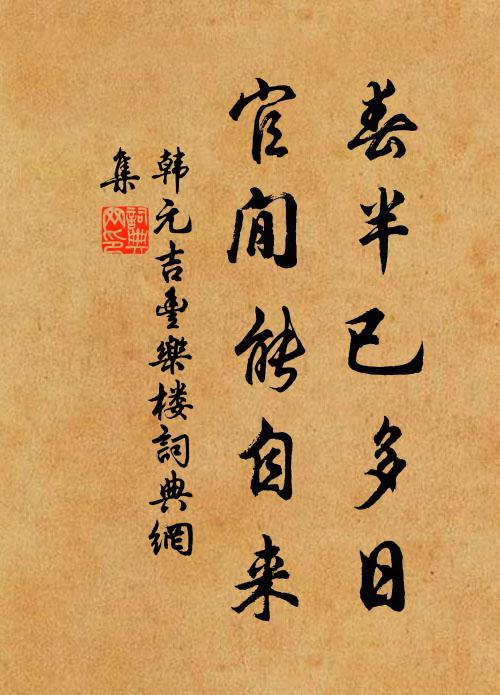 春半已多日
官閒能自来
韩元吉豐樂楼詞典網
集
詞典網印